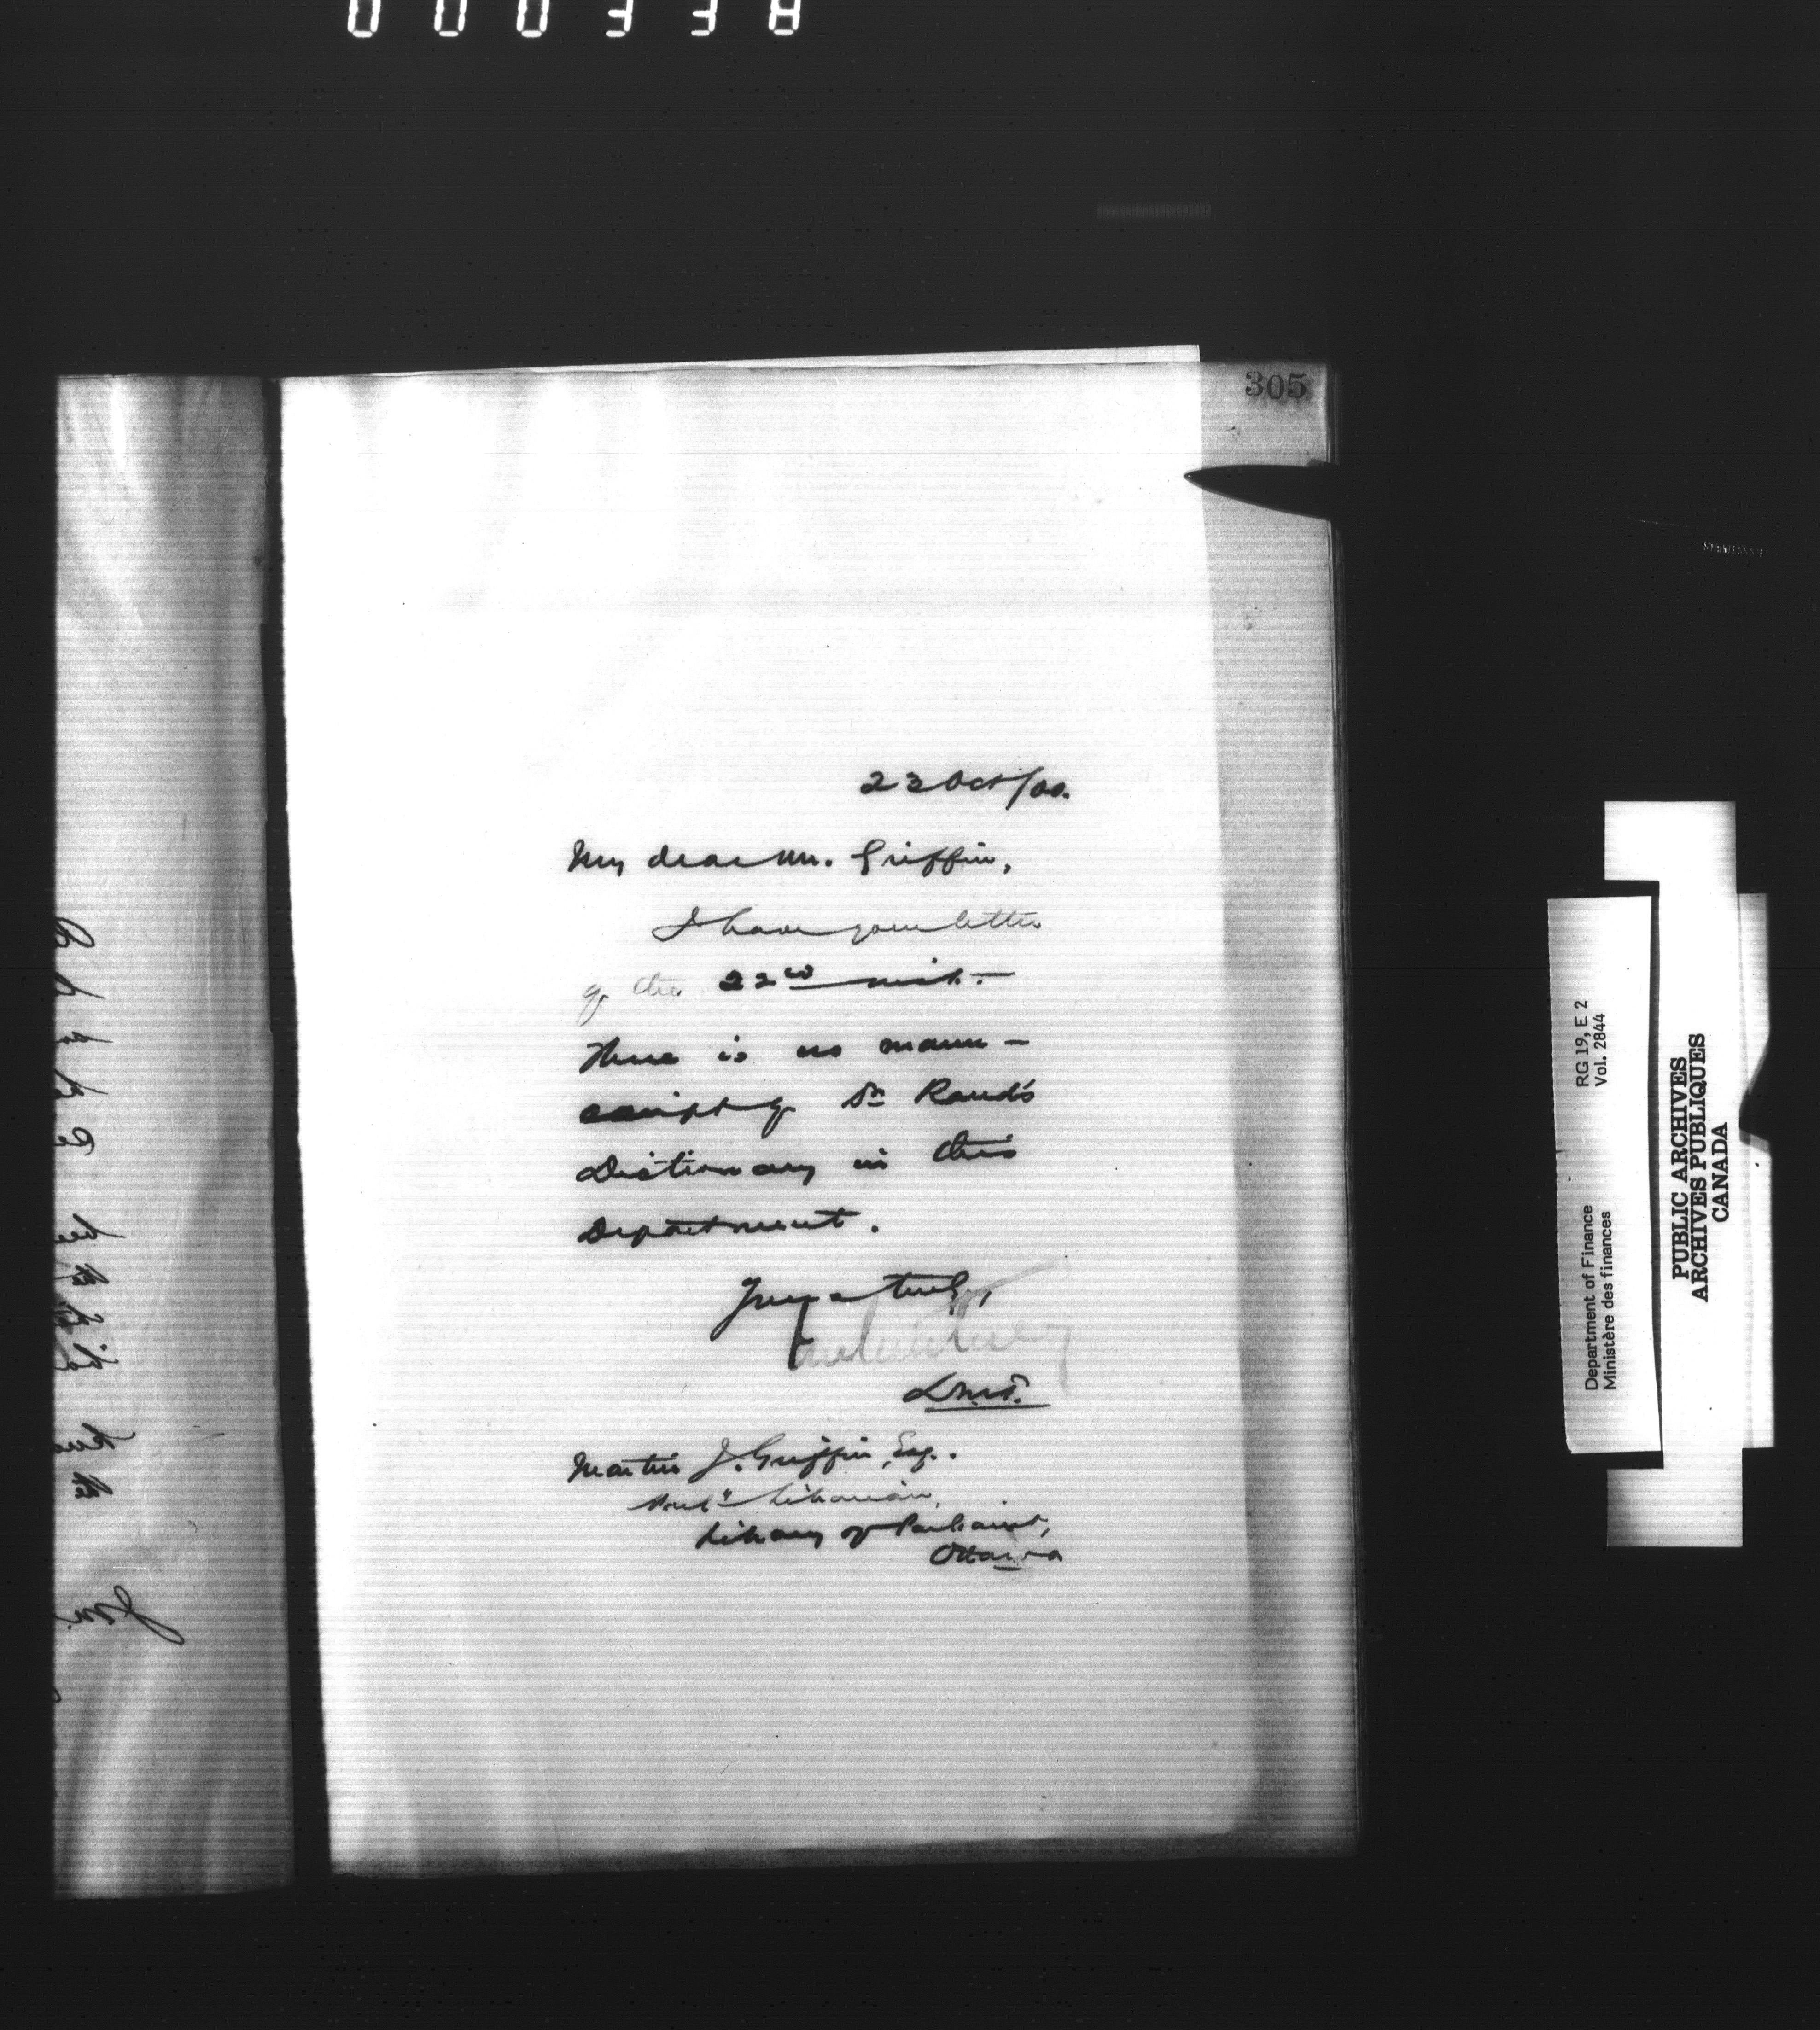 000338
305
23 Oct/00.
My dear Mr. Griffin,
I have your letter
of the 22nd inst. —
There is no manu-
script of Dr Rand's
Dictionary in this
Department.
Yours truly,
D.M.F.
Martin J. Griffin, Esq.
Parl'y Librarian,
Library of Parliament,
Ottawa
RG 19, E 2
Vol. 2844
Department of Finance
Ministère des finances
PUBLIC ARCHIVES
ARCHIVES PUBLIQUES
CANADA